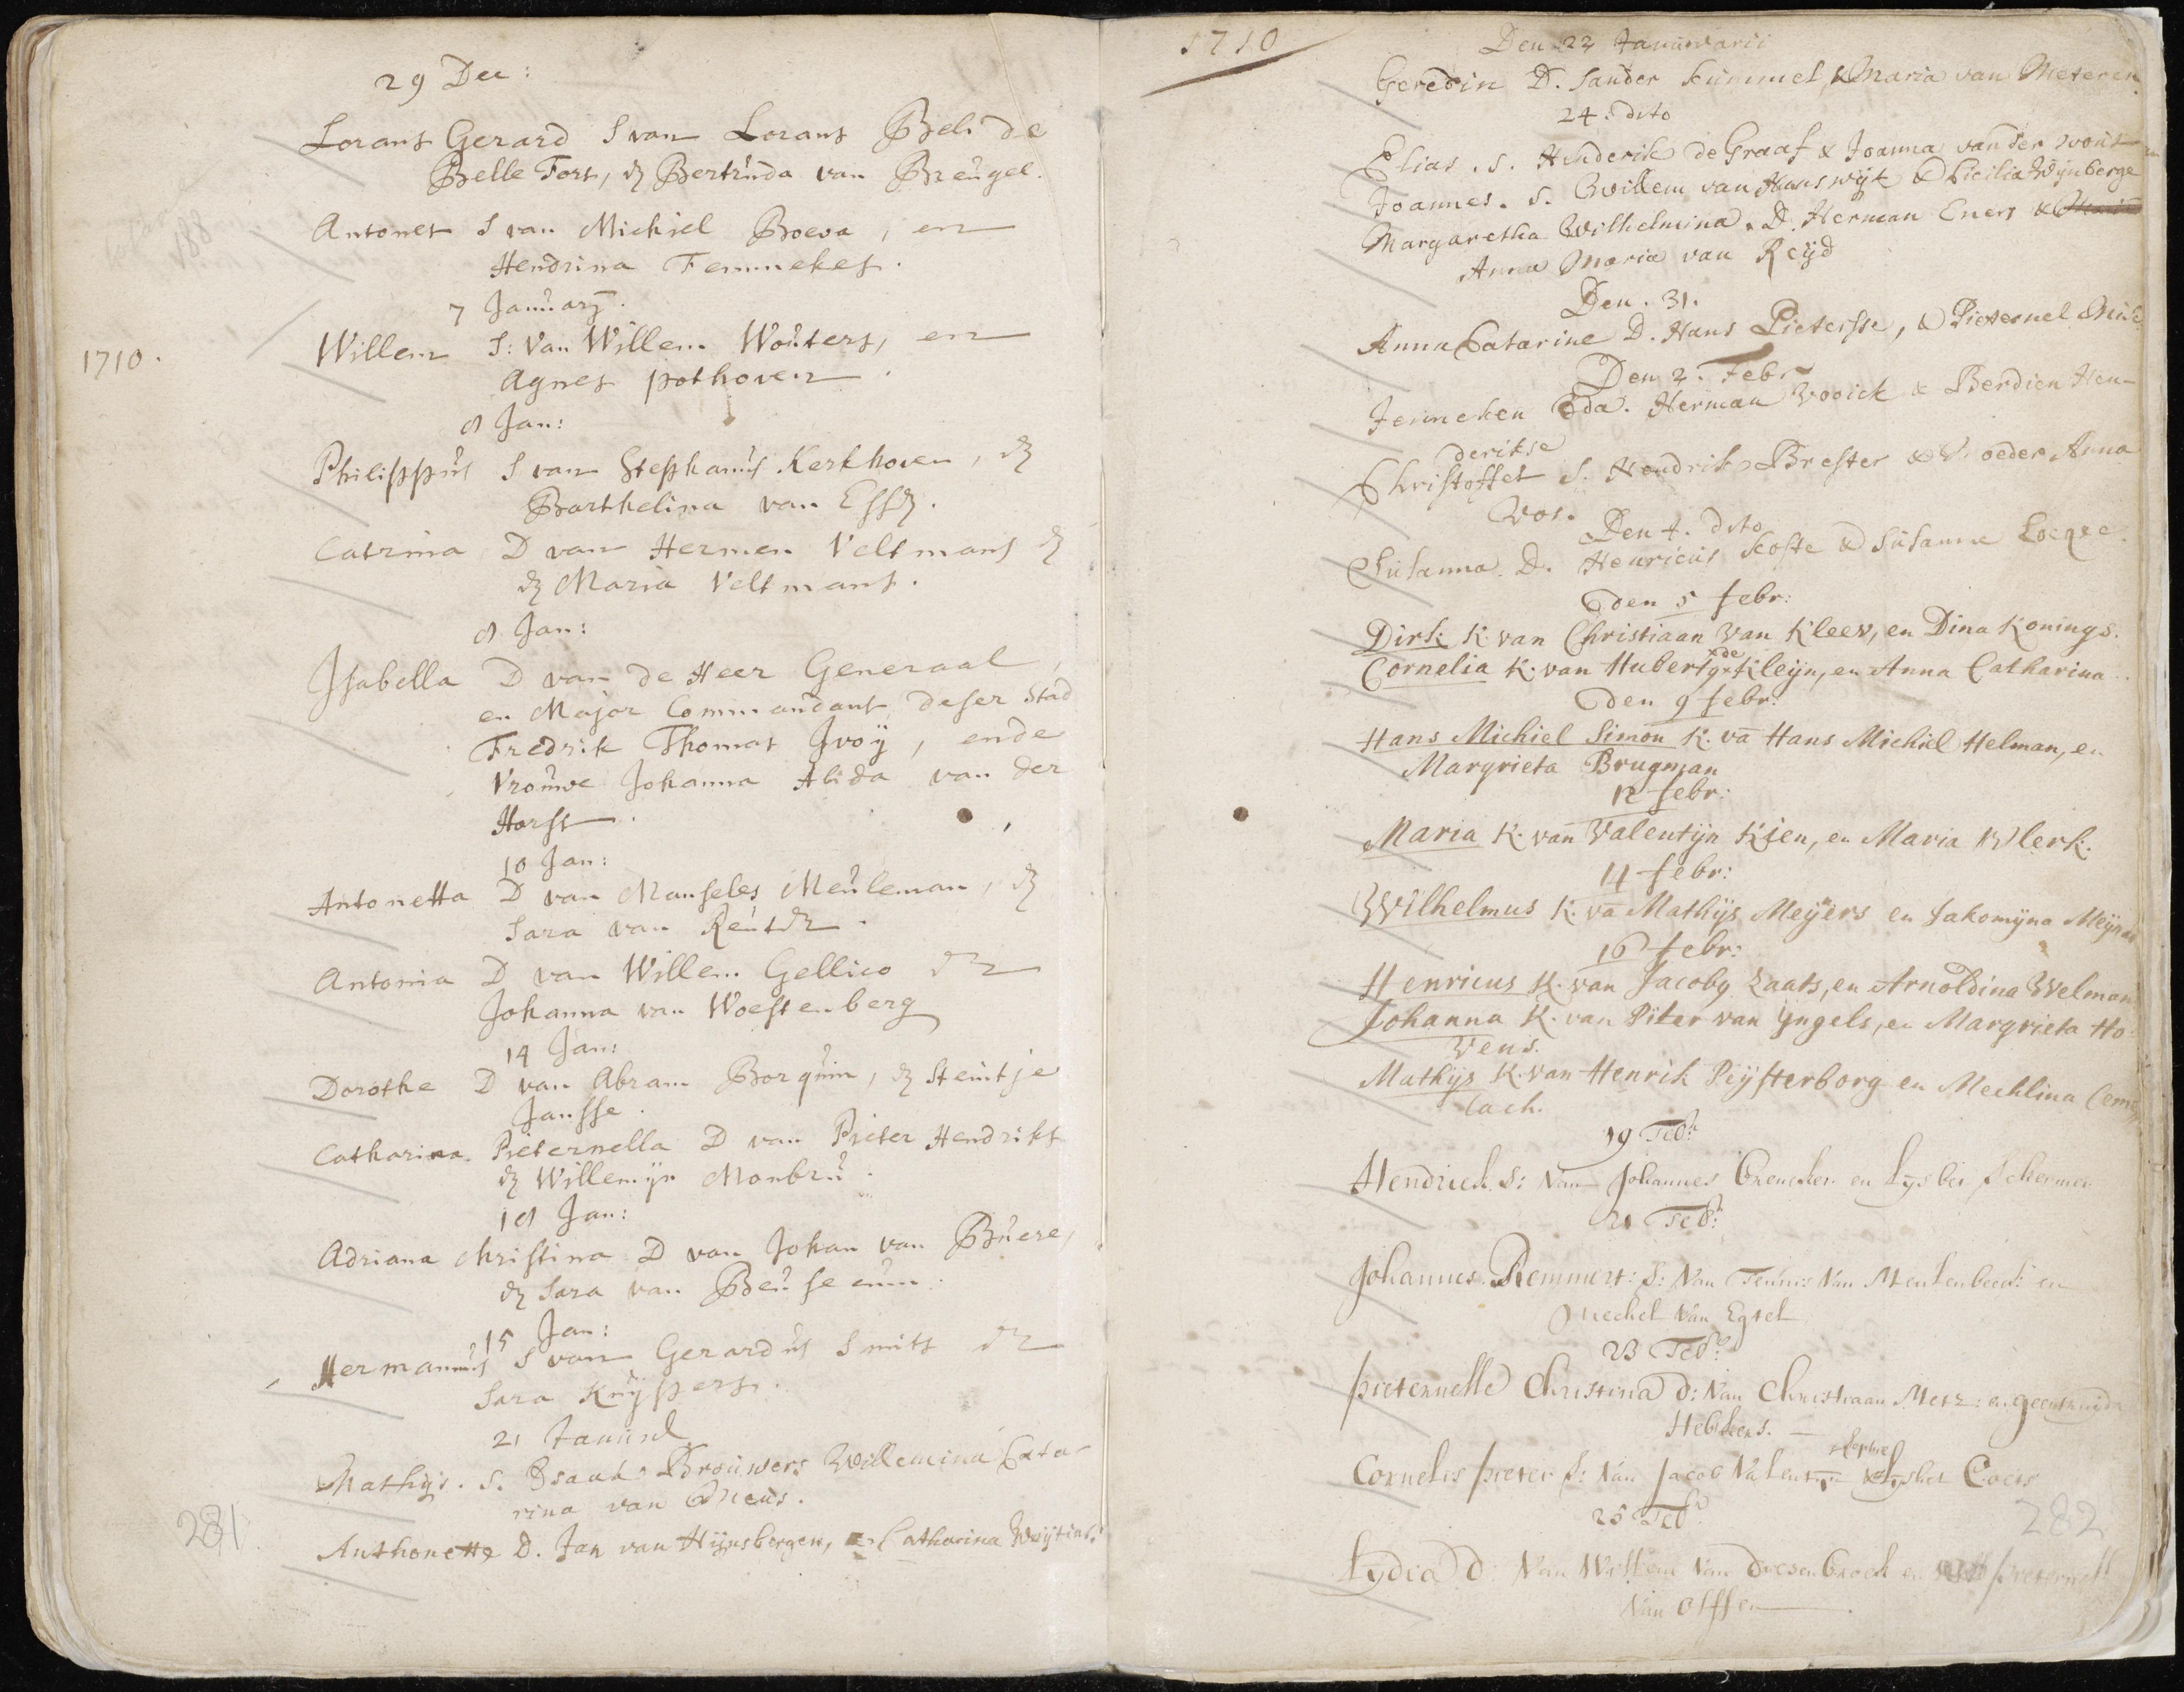 29 Dec:
Lorans Gerard S van Lorans Beli de
Belle Fort, en Bertruda van Breugel.
Antonet S van Michiel Boeva, en
Hendrina Femmekes.
7 January.
1710.
Willem S: Van Willem Wouters, en
Agnes pothoven
8 Jan:
Philippus S van Stephanus Kerkhoven, en
Barthelina van Essen.
Catrina D van Hermen Veltmans en
en Maria Veltmans.
8 Jan:
Isabella D van de Heer Generaal,
en Major Commandant deser Stad
Fredrik Thomas Ivoÿ, ende
Vrouwe Johanna Alida van der
Horst.
10 Jan:
Antonetta D van Manseles Meuleman, en
Sara van
Antonia D van Willem Gellico en
Johanna van Woestenberg
14 Jan:
Dorothe D van Abram Borquin, en Steintje
Jansse.
Catharina Pieternella D van Pieter Hendriks
en Willemijn Monbru.
18 Jan:
Adriana Christina D van Johan van Buere,
en Sara van Beuseeum.
15 Jan:
Hermannus S van Gerardus Smits en
Sara Kuÿpers.
21
Mathijs. S. Isaak Brouwers Willemina Cata-
rina van
281
Anthonette D. Jan van Hijnsbergen, en Catharina
1710
Den 22 Januwarii
Geredin D. Sander Kummel, & Maria van Meteren.
24. dito
Elias. S. Henderik de Graaf & Joanna van der wout
Joannes. S. Willem van Hanswijk & Cicilia Wijnberge
Margaretha Wilhelmina. D. Herman Eners &
Anna Maria van Reijd
Den. 31.
Anna Catarine D. Hans Pietersse, & Pieternel
Den 2. Febr
Jenneken Eda. Herman Vooick & Berdien Hen-
derikse
Christoffel S. Hendrik Brester & Moeder Anna
Vos.
Den 4. dito
Susanna. D. Henricus Koste & Susanne Loeqee.
den 5 febr:
Dirk K. van Christiaan Van Kleev, en Dina Konings.
Cornelia K. van Hubert de Kleijn, en Anna Catharina..
den 9 febr:
Hans Michiel Simon K. va Hans Michiel Helman, en
Margrieta Brugman
12 febr:
Maria K. van Valentijn Kien, en Maria Klerk.
14 febr:
Wilhelmus K. va Mathijs Meijers en Jakomijna
16 febr:
Henricus K. van Jacobg Laats, en Arnoldina Welman
Johanna K. van Piter van Yngels, en Margrieta Ho-
vens.
Mathijs K. van Henrik Peijsterborg en Mechlina
lach.
19 Feb:
Hendrick S: Van Johannes Brencker en Lysbet Schermer
21 Feb:
Johannes Remmert: S: Van Teunis Van Meulenbeek: en
Mechel Van Egtel
23 Feb:
pieternelle Christina d: Van Christiaan Metz: en geertruijda
Hebkens. —
Cornelis pieter S: Van Jacob Valentin & Lysbet Coets
25 Feb:
282
Lydia d: Van Willem Van Driesenbroek en pieternell
Van Olffen